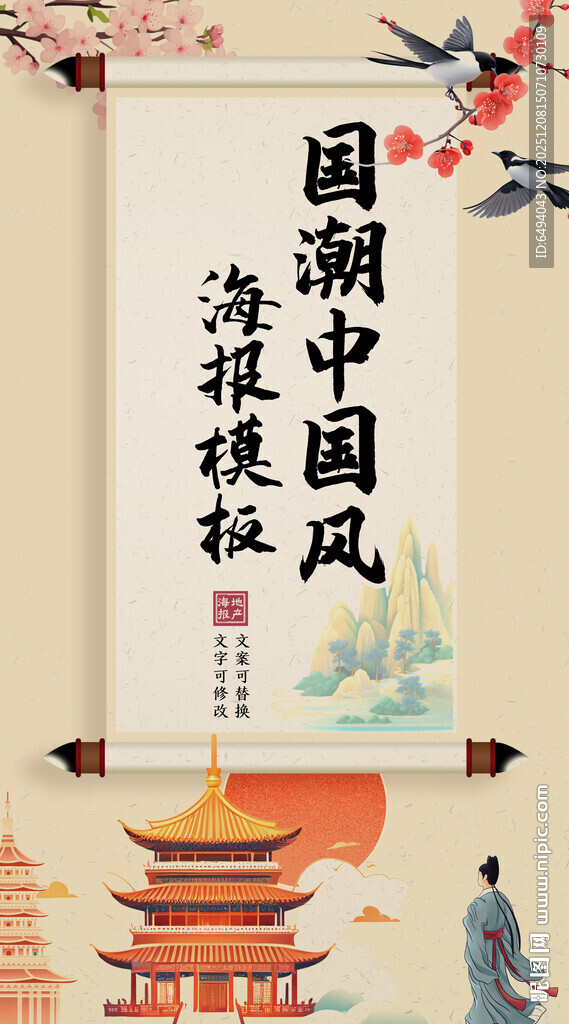 国潮中国风
海报模板
地产
海报
文案可替换
文字可修改
ID:6494043 NO:20251208150710730109
昵图网 www.nipic.com